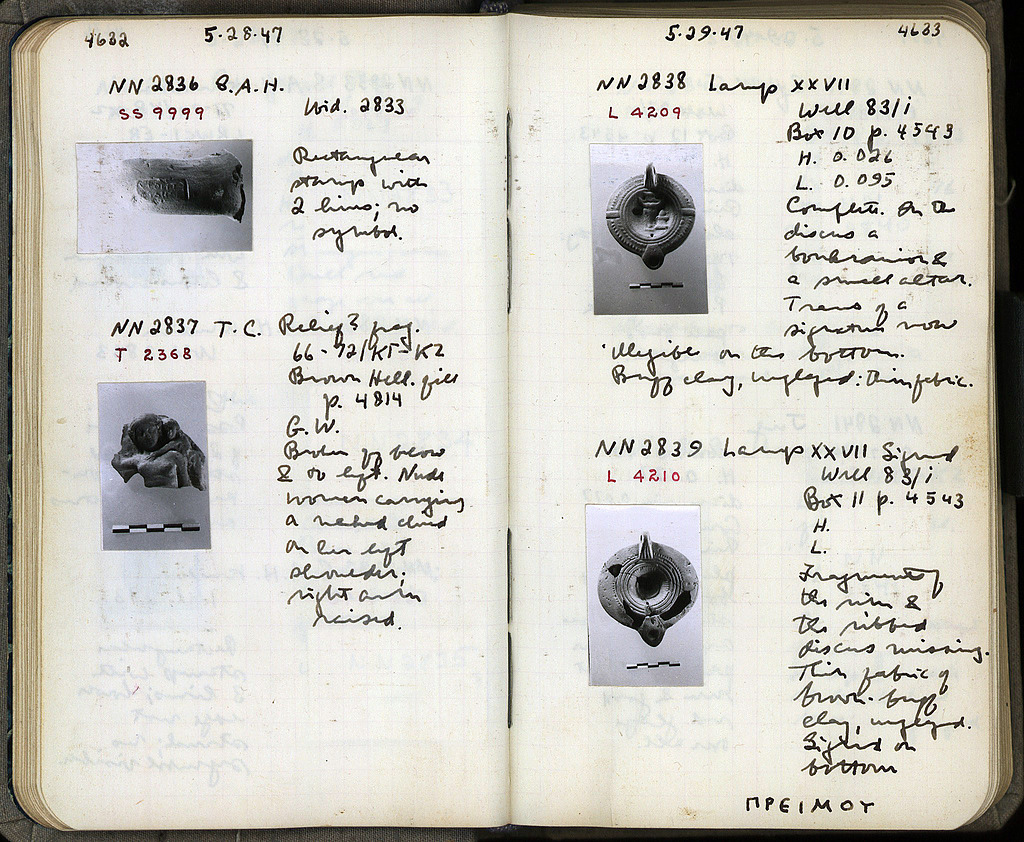 4632
5-28-47
NN 2836 S.A.H.
SS 9999
Wid. 2833
Rectangular
stamp with
2 lines; no
symbol.
NN 2837 T.C. Relief? frag.
T 2368
66-72/ΚΓ-ΚΖ
Brown Hell. fill
p. 4814
G.W.
Broken off below
& to left. Nude
woman carrying
a naked child
on her left
shoulder;
right arm
raised.
5-29-47
4633
NN 2838 Lamp XXVII
L 4209
Well 83/i
Box 10 p. 4543
H. 0.026
L. 0.095
Complete. On the
discus a
boukranion &
a small altar.
Traces of a
signature now
illegible on the bottom.
Buff clay, unglazed: thin fabric.
NN 2839 Lamp XXVII Signed
L 4210
Well 83/i
Box 11 p. 4543
H.
L.
Fragments of
the rim &
the ribbed
discus missing.
Thin fabric of
brown-buff
clay, unglazed.
Signed on
bottom
ΠΡΕΙΜΟΥ